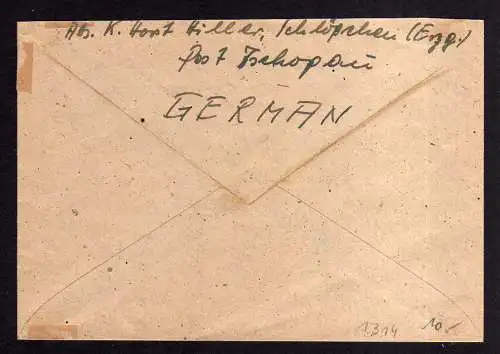 Abs. K. Horst Hiller, Schlößchen (Erzg.)
Post Zschopau
GERMAN
1314 10.-